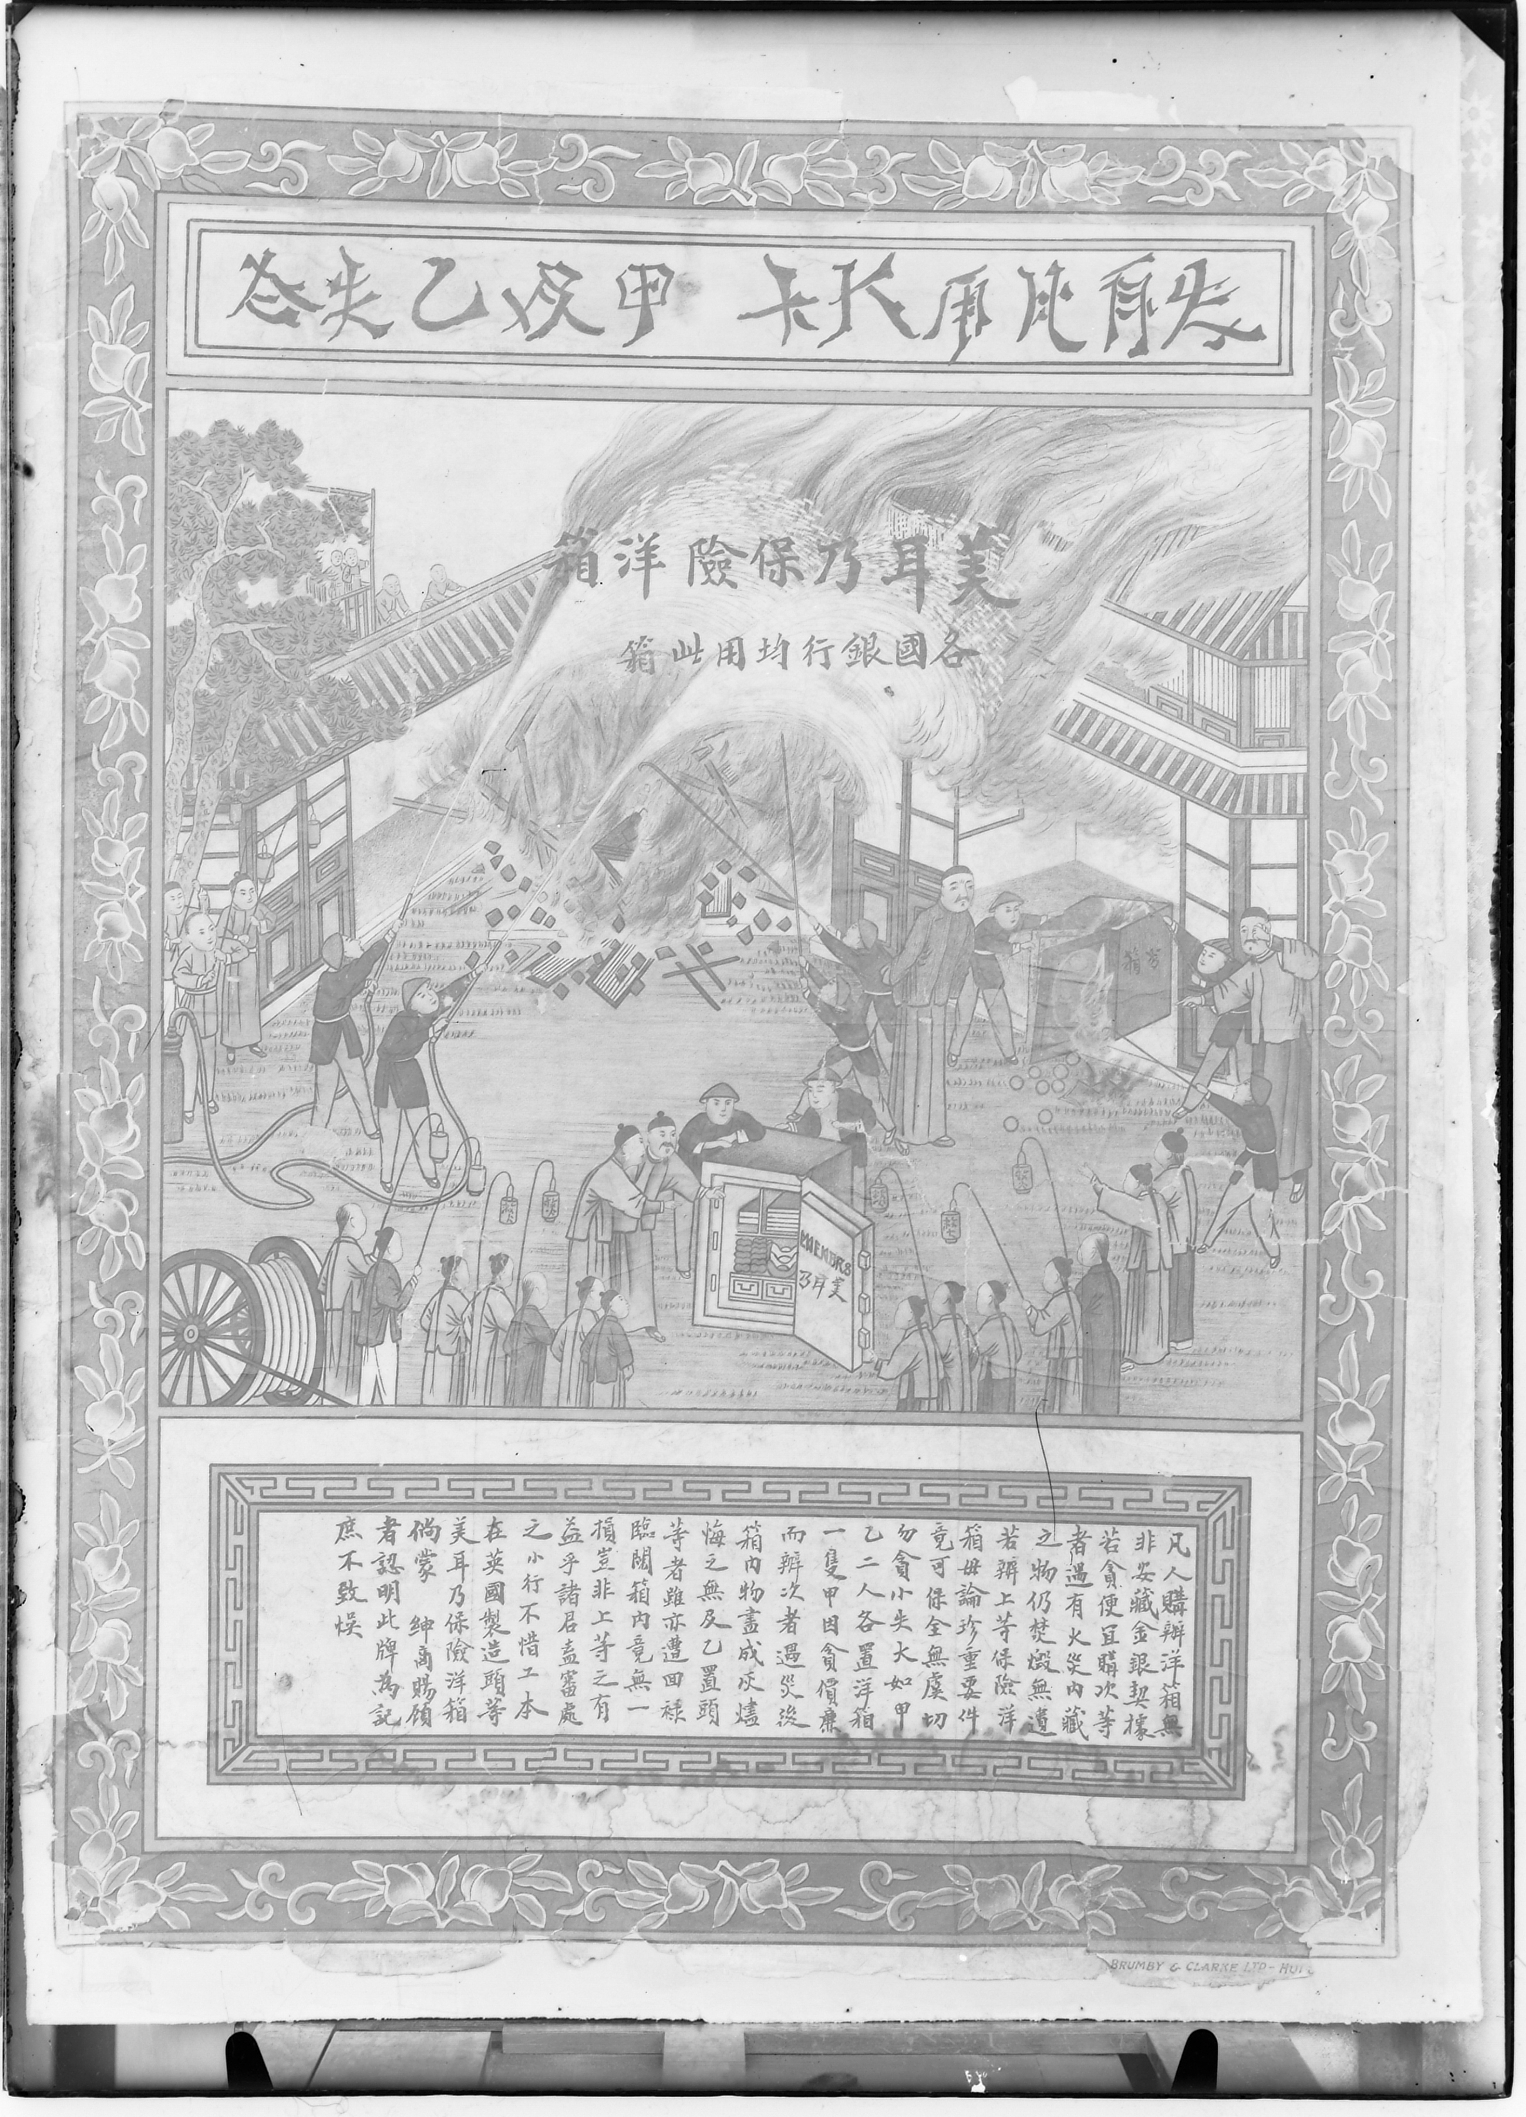 美耳乃保險洋箱
各國銀行均用此箱
MEMBRS
美耳乃
凡人購辦洋箱無
非安藏金銀契據
若貪便宜購次等
者遇有火災內藏
之物仍焚燬無遺
若辦上等保險洋
箱毋論珍重要件
竟可保全無虞切
勿貪小失大如甲
乙二人各置洋箱
一隻甲因貪價廉
而辦次者遇災後
箱內物盡成灰燼
悔之無及乙置頭
等者雖亦遭回祿
臨開箱內竟無一
損豈非上等之有
益乎諸君盍審處
之小行不惜工本
在英國製造頭等
美耳乃保險洋箱
倘蒙 紳商賜顧
者認明此牌為記
庶不致悞
BRUMBY & CLARKE LTD- HULL